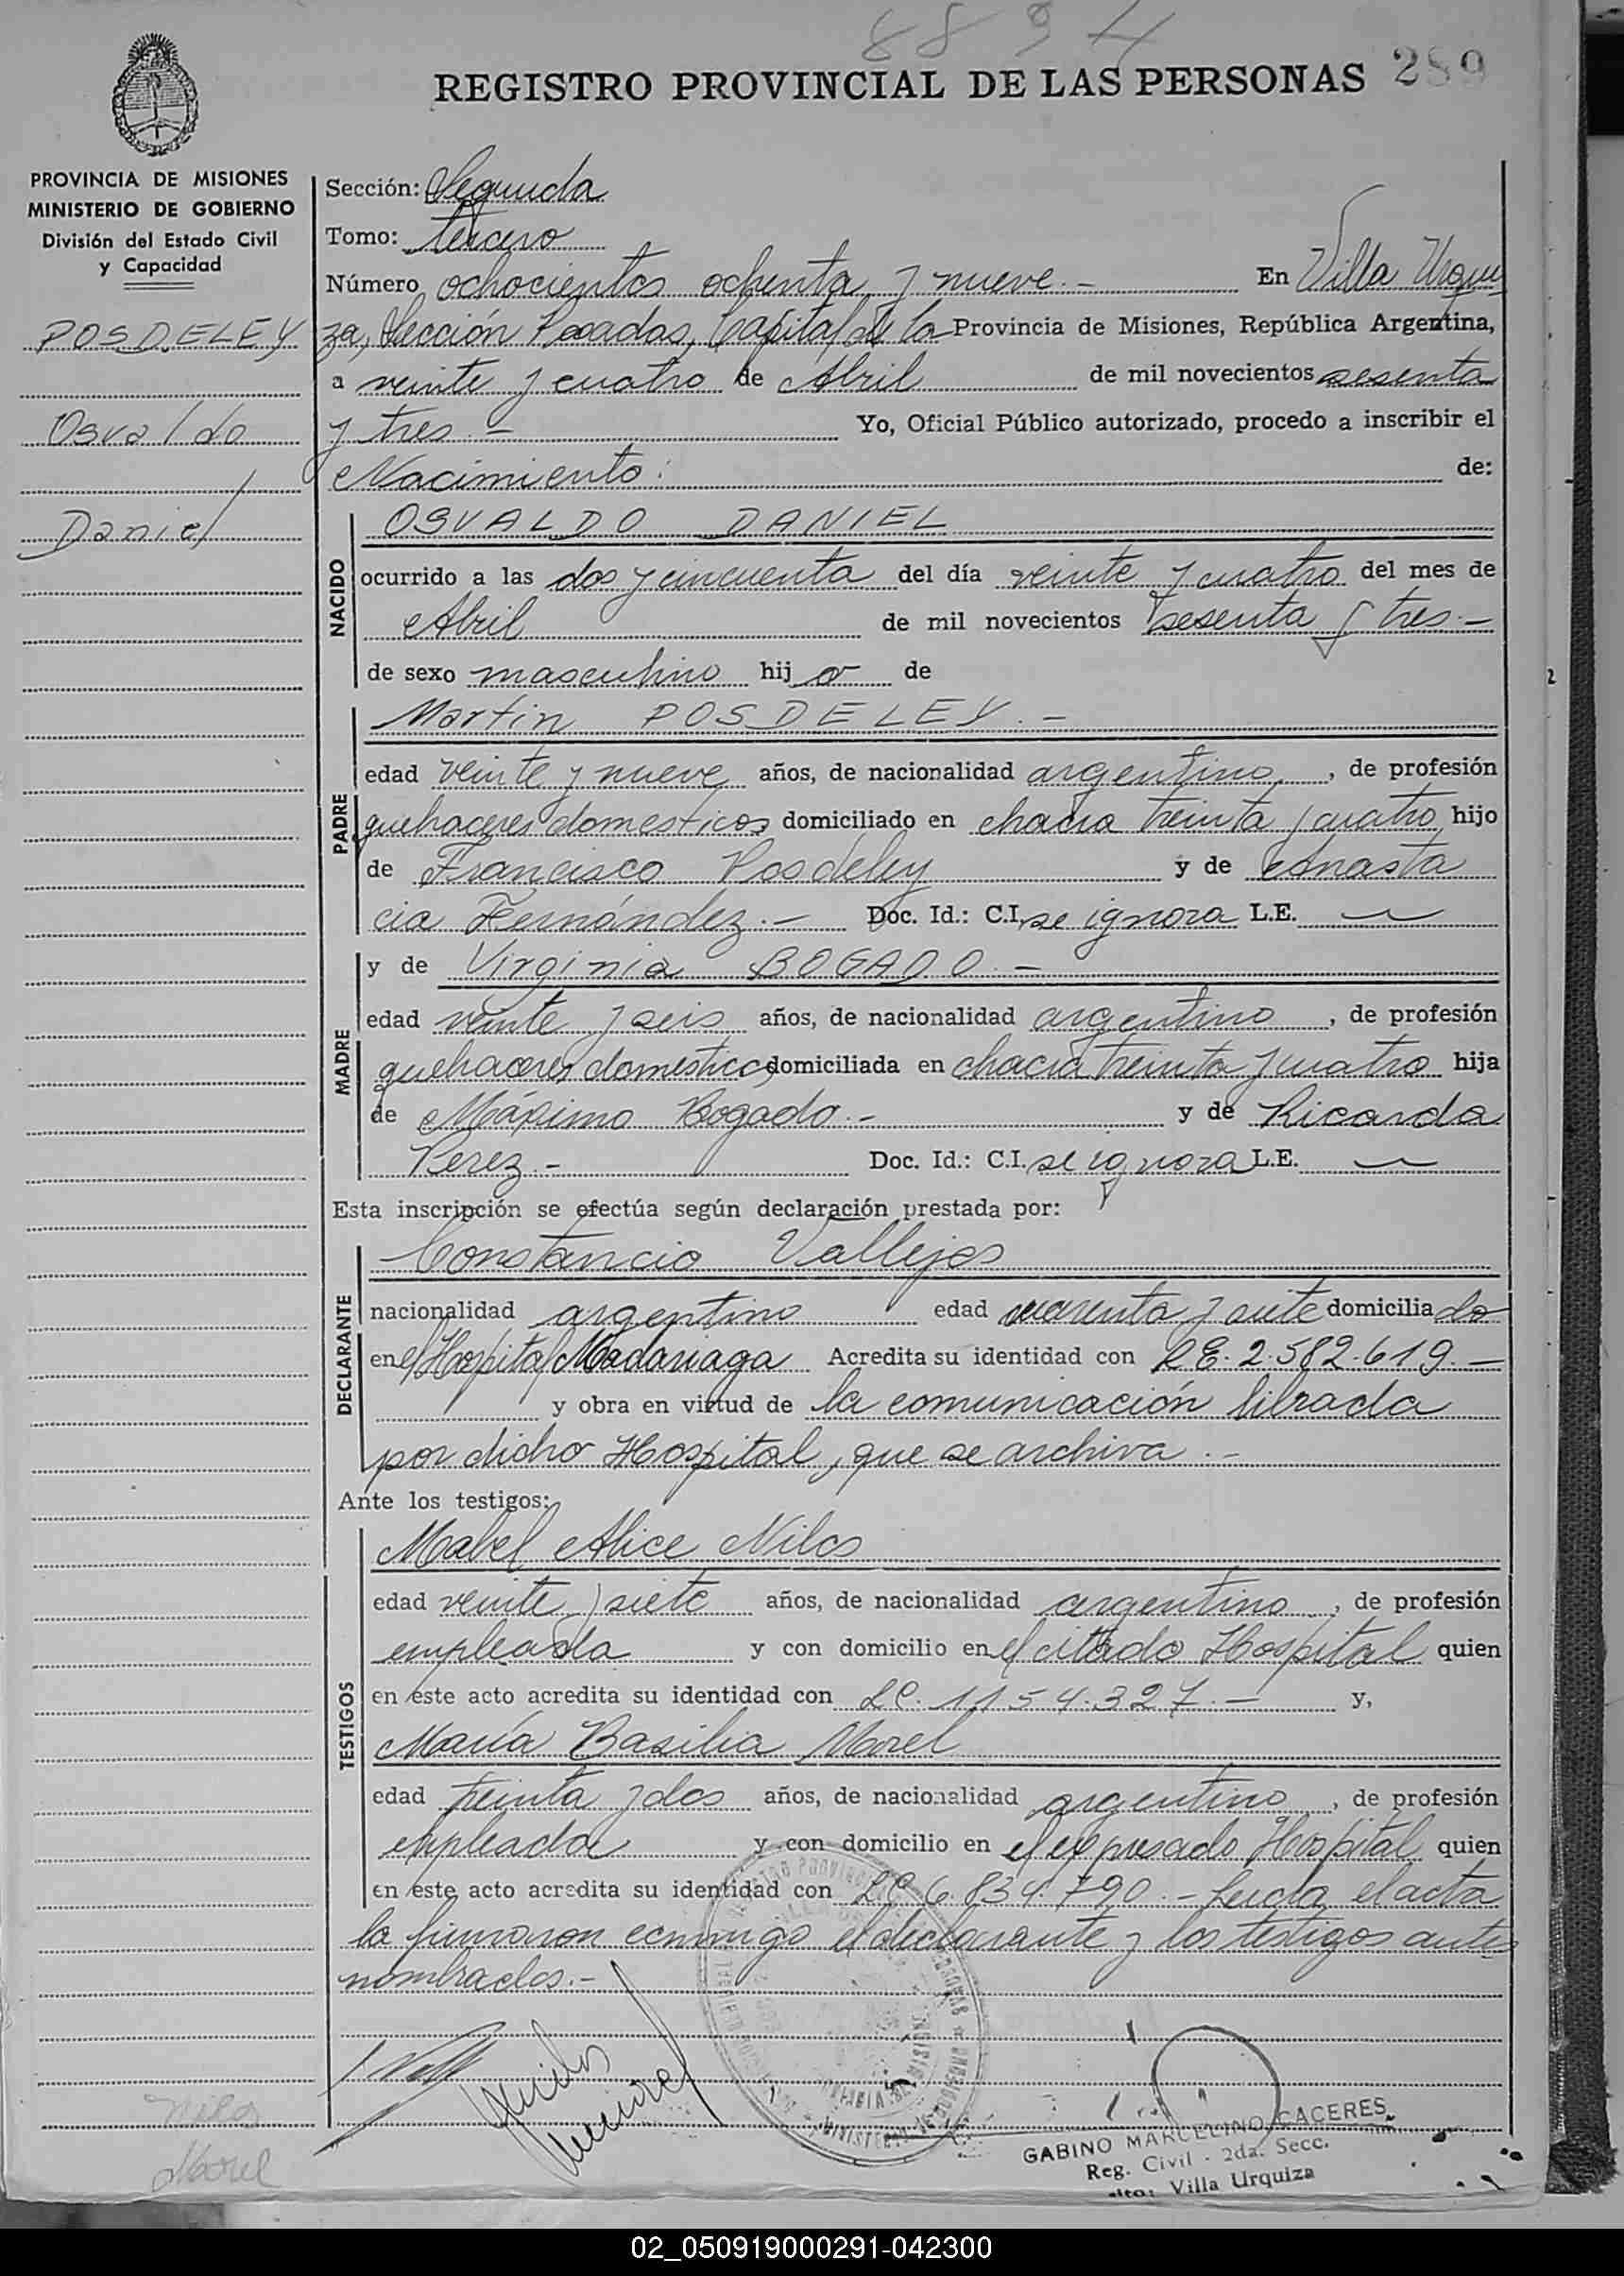 8894
289
REGISTRO PROVINCIAL DE LAS PERSONAS
PROVINCIA DE MISIONES
MINISTERIO DE GOBIERNO
División del Estado Civil
y Capacidad
POSDELEY
Osvaldo
Daniel
Sección: Segunda
Tomo: tercero
Número ochocientos ochenta y nueve.- En Villa Urqui
za, Sección Posadas, Capital de la Provincia de Misiones, República Argentina,
a veinte y cuatro de Abril de mil novecientos sesenta
y tres.- Yo, Oficial Público autorizado, procedo a inscribir el
Nacimiento: de:
NACIDO
OSVALDO DANIEL
ocurrido a las dos y cincuenta del día veinte y cuatro del mes de
Abril de mil novecientos sesenta y tres.-
de sexo masculino hijo de
PADRE
Martín POSDELEY.-
edad veinte y nueve años, de nacionalidad argentino, de profesión
quehaceres domesticos domiciliado en chacra treinta y cuatro hijo
de Francisco Posdeley y de Anasta
cia Fernández.- Doc. Id.: C.I. se ignora L.E.
MADRE
y de Virginia BOGADO.-
edad veinte y seis años, de nacionalidad argentino, de profesión
quehaceres domesticos domiciliada en chacra treinta y cuatro hija
de Máximo Bogado.- y de Ricarda
Perez.- Doc. Id.: C.I. se ignora L.E.
Esta inscripción se efectúa según declaración prestada por:
DECLARANTE
Constancio Vallejos
nacionalidad argentino edad cuarenta y siete domiciliado
en el Hospital Madariaga Acredita su identidad con L.E. 2.582.619.-
y obra en virtud de la comunicación librada
por dicho Hospital, que se archiva.-
Ante los testigos:
TESTIGOS
Mabel Alice Nilos
edad veinte y siete años, de nacionalidad argentino, de profesión
empleada y con domicilio en el citado Hospital quien
en este acto acredita su identidad con L.C. 1154.327.- y,
María Basilia Morel
edad treinta y dos años, de nacionalidad argentino, de profesión
empleada y con domicilio en el expresado Hospital quien
en este acto acredita su identidad con L.C. 6.834.790.- Leida el acta
la firmaron conmigo el declarante y los testigos antes
nombrados.-
Nilos
Morel
GABINO MARCELINO CACERES
Reg. Civil - 2da. Secc.
Villa Urquiza
02_050919000291-042300